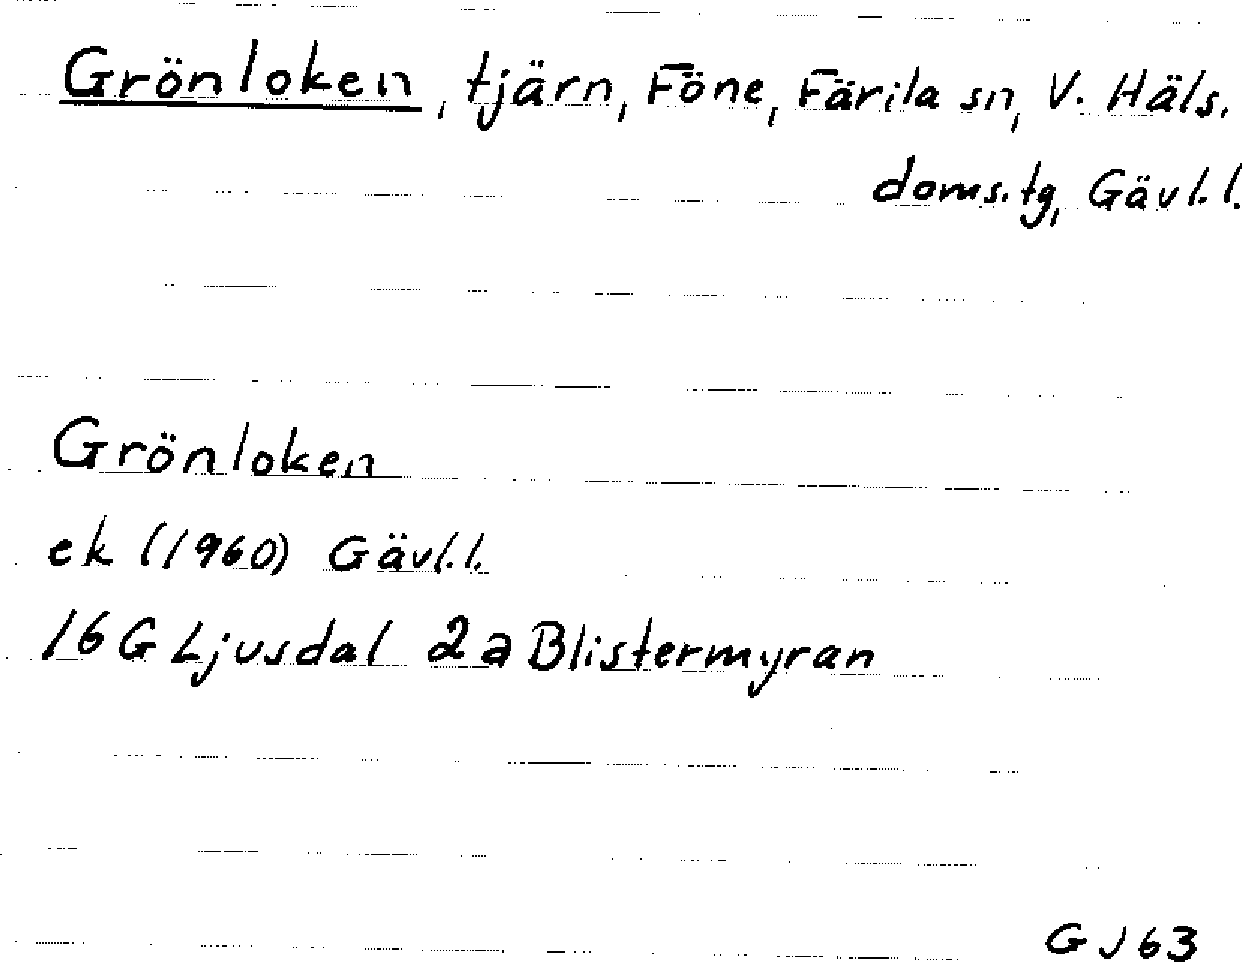 Grönloken, tjärn, Föne, Färila sn, V. Häls.
doms.tg, Gävl.l.
Grönloken
ek (1960) Gävl.l.
16 G Ljusdal 2a Blistermyran
GJ63